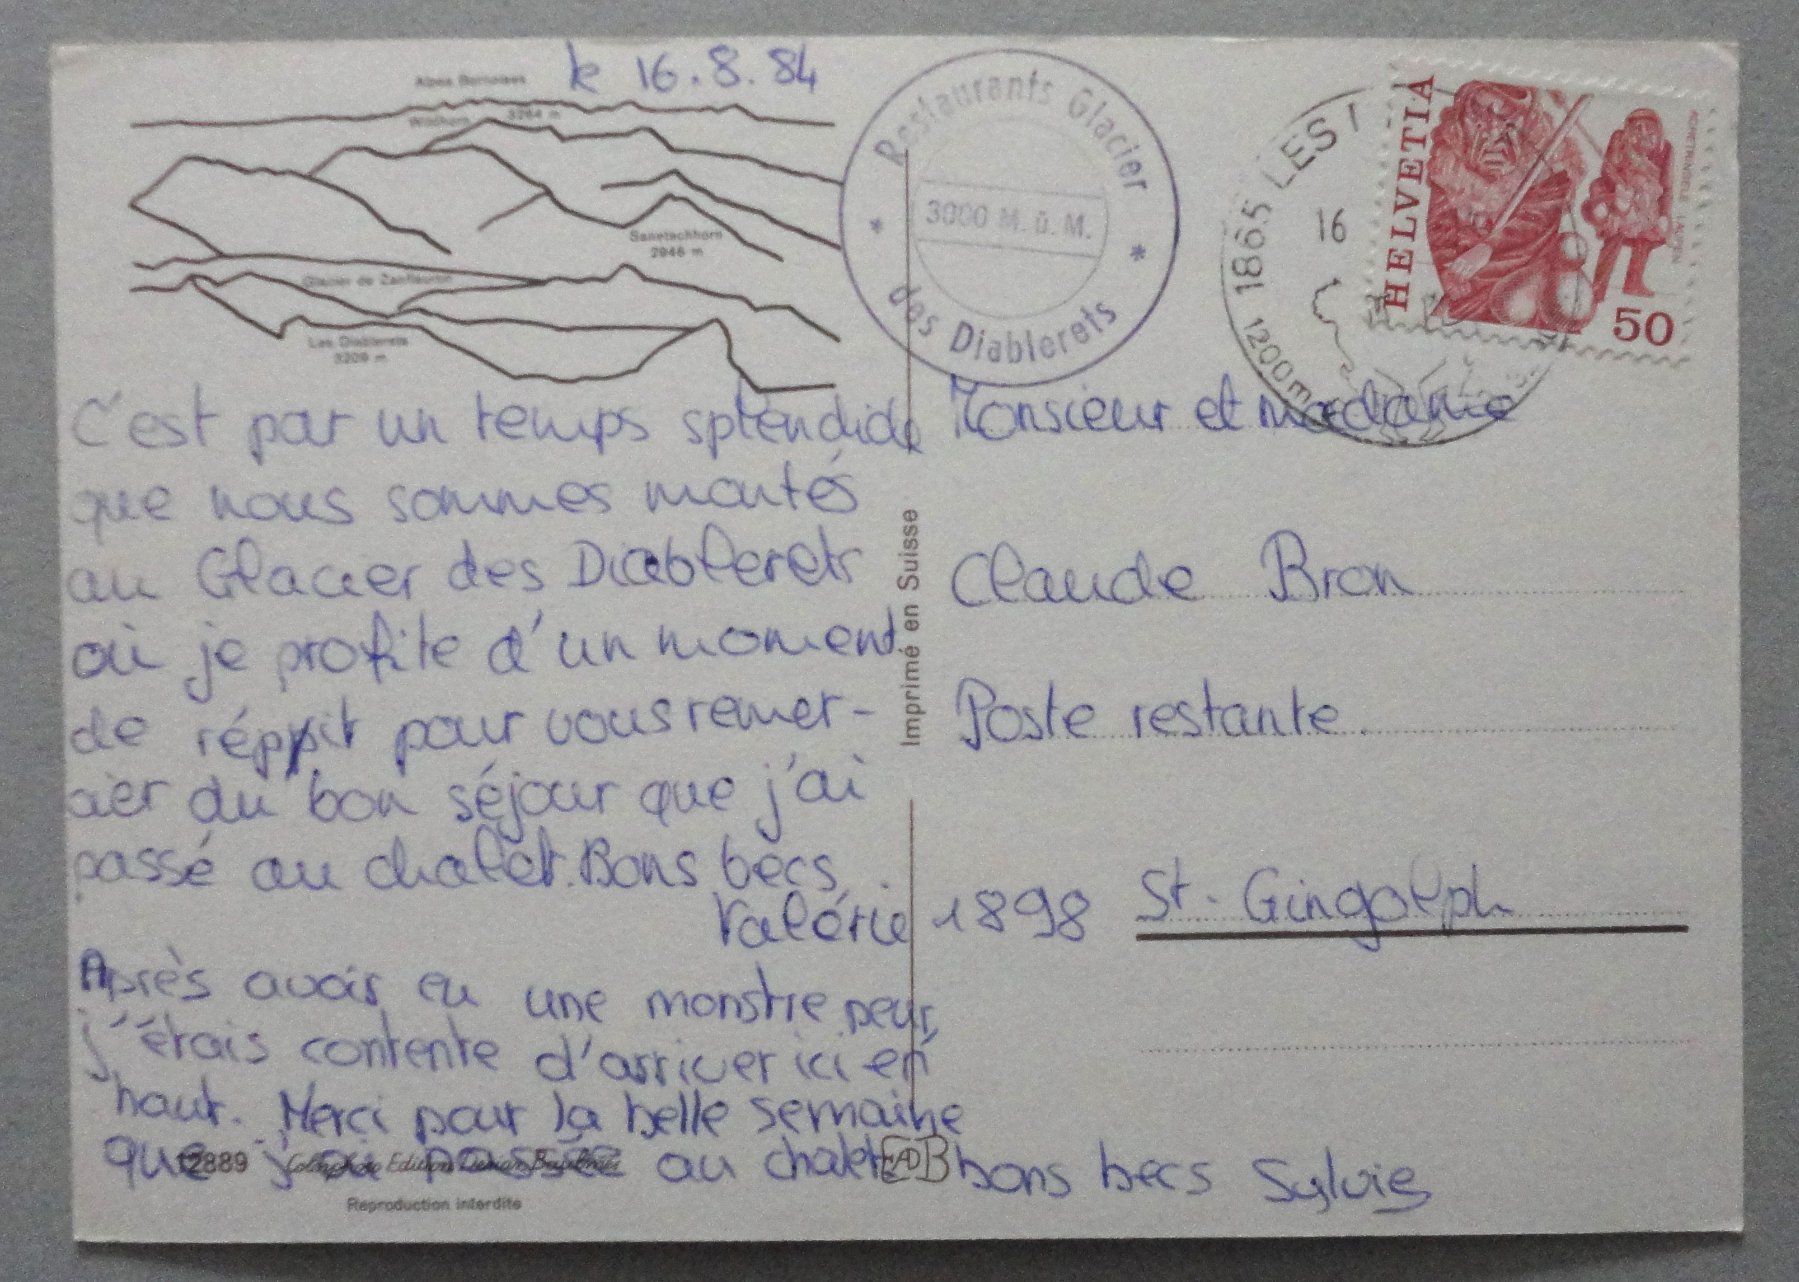 le 16.8.84
Alpes Bernoises
Wildhorn 3264 m
Sanetschhorn
2946 m
Glacier de Zanfleuron
Les Diablerets
3209 m
Restaurants Glacier
3000 M. ü. M.
des Diablerets
1865 LES
16
1200 m
HELVETIA
50
C'est par un temps splendide
que nous sommes montés
au Glacier des Diablerets
où je profite d'un moment
de réppit pour vous remer-
cier du bon séjour que j'ai
passé au chalet. Bons becs.
Valérie
Après avoir eu une monstre peur,
j'étais contente d'arriver ici en
haut. Merci pour la belle semaine
que j'ai passée au chalet bons becs Sylvie
Imprimé en Suisse
Monsieur et madame
Claude Bron
Poste restante.
1898 St. Gingolph
12889
Reproduction interdite